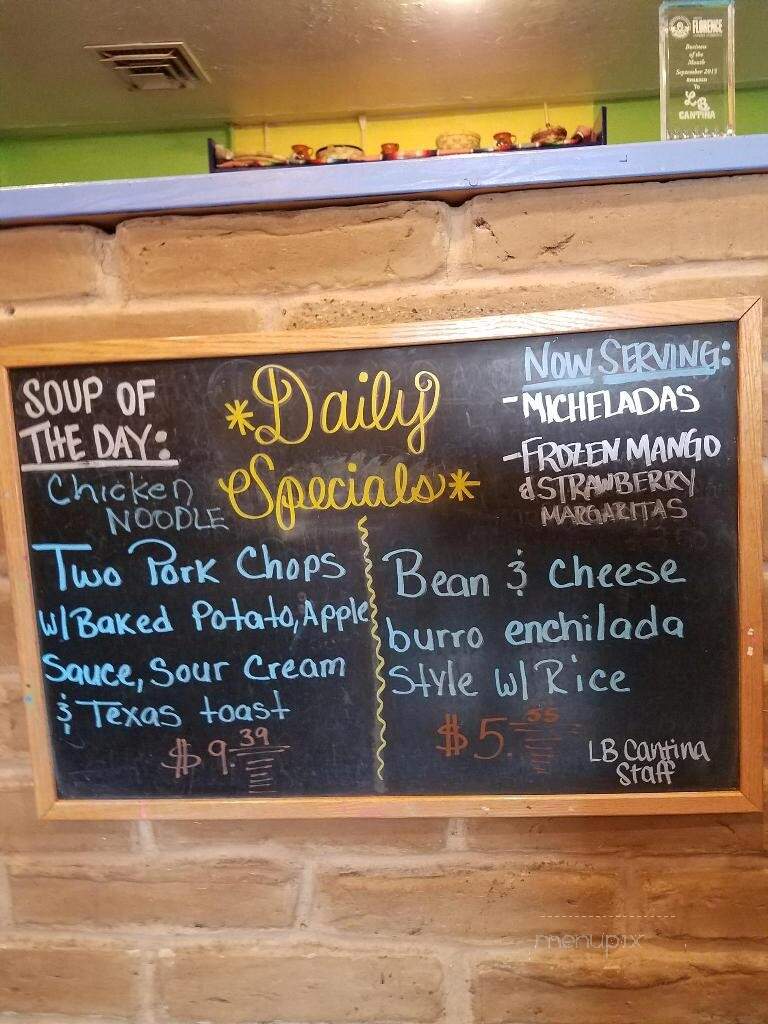 FLORENCE
Business
of the
Month
September 2015
To
LB
CANTINA
SOUP OF
THE DAY:
Chicken
NOODLE
*Daily
Specials*
NOW SERVING:
-MICHELADAS
-FROZEN MANGO
& STRAWBERRY
MARGARITAS
Two Pork Chops
w/Baked Potato, Apple
Sauce, Sour Cream
& Texas toast
$9.39
Bean & cheese
burro enchilada
Style w/Rice
$5.55
LB Cantina
Staff
menupix